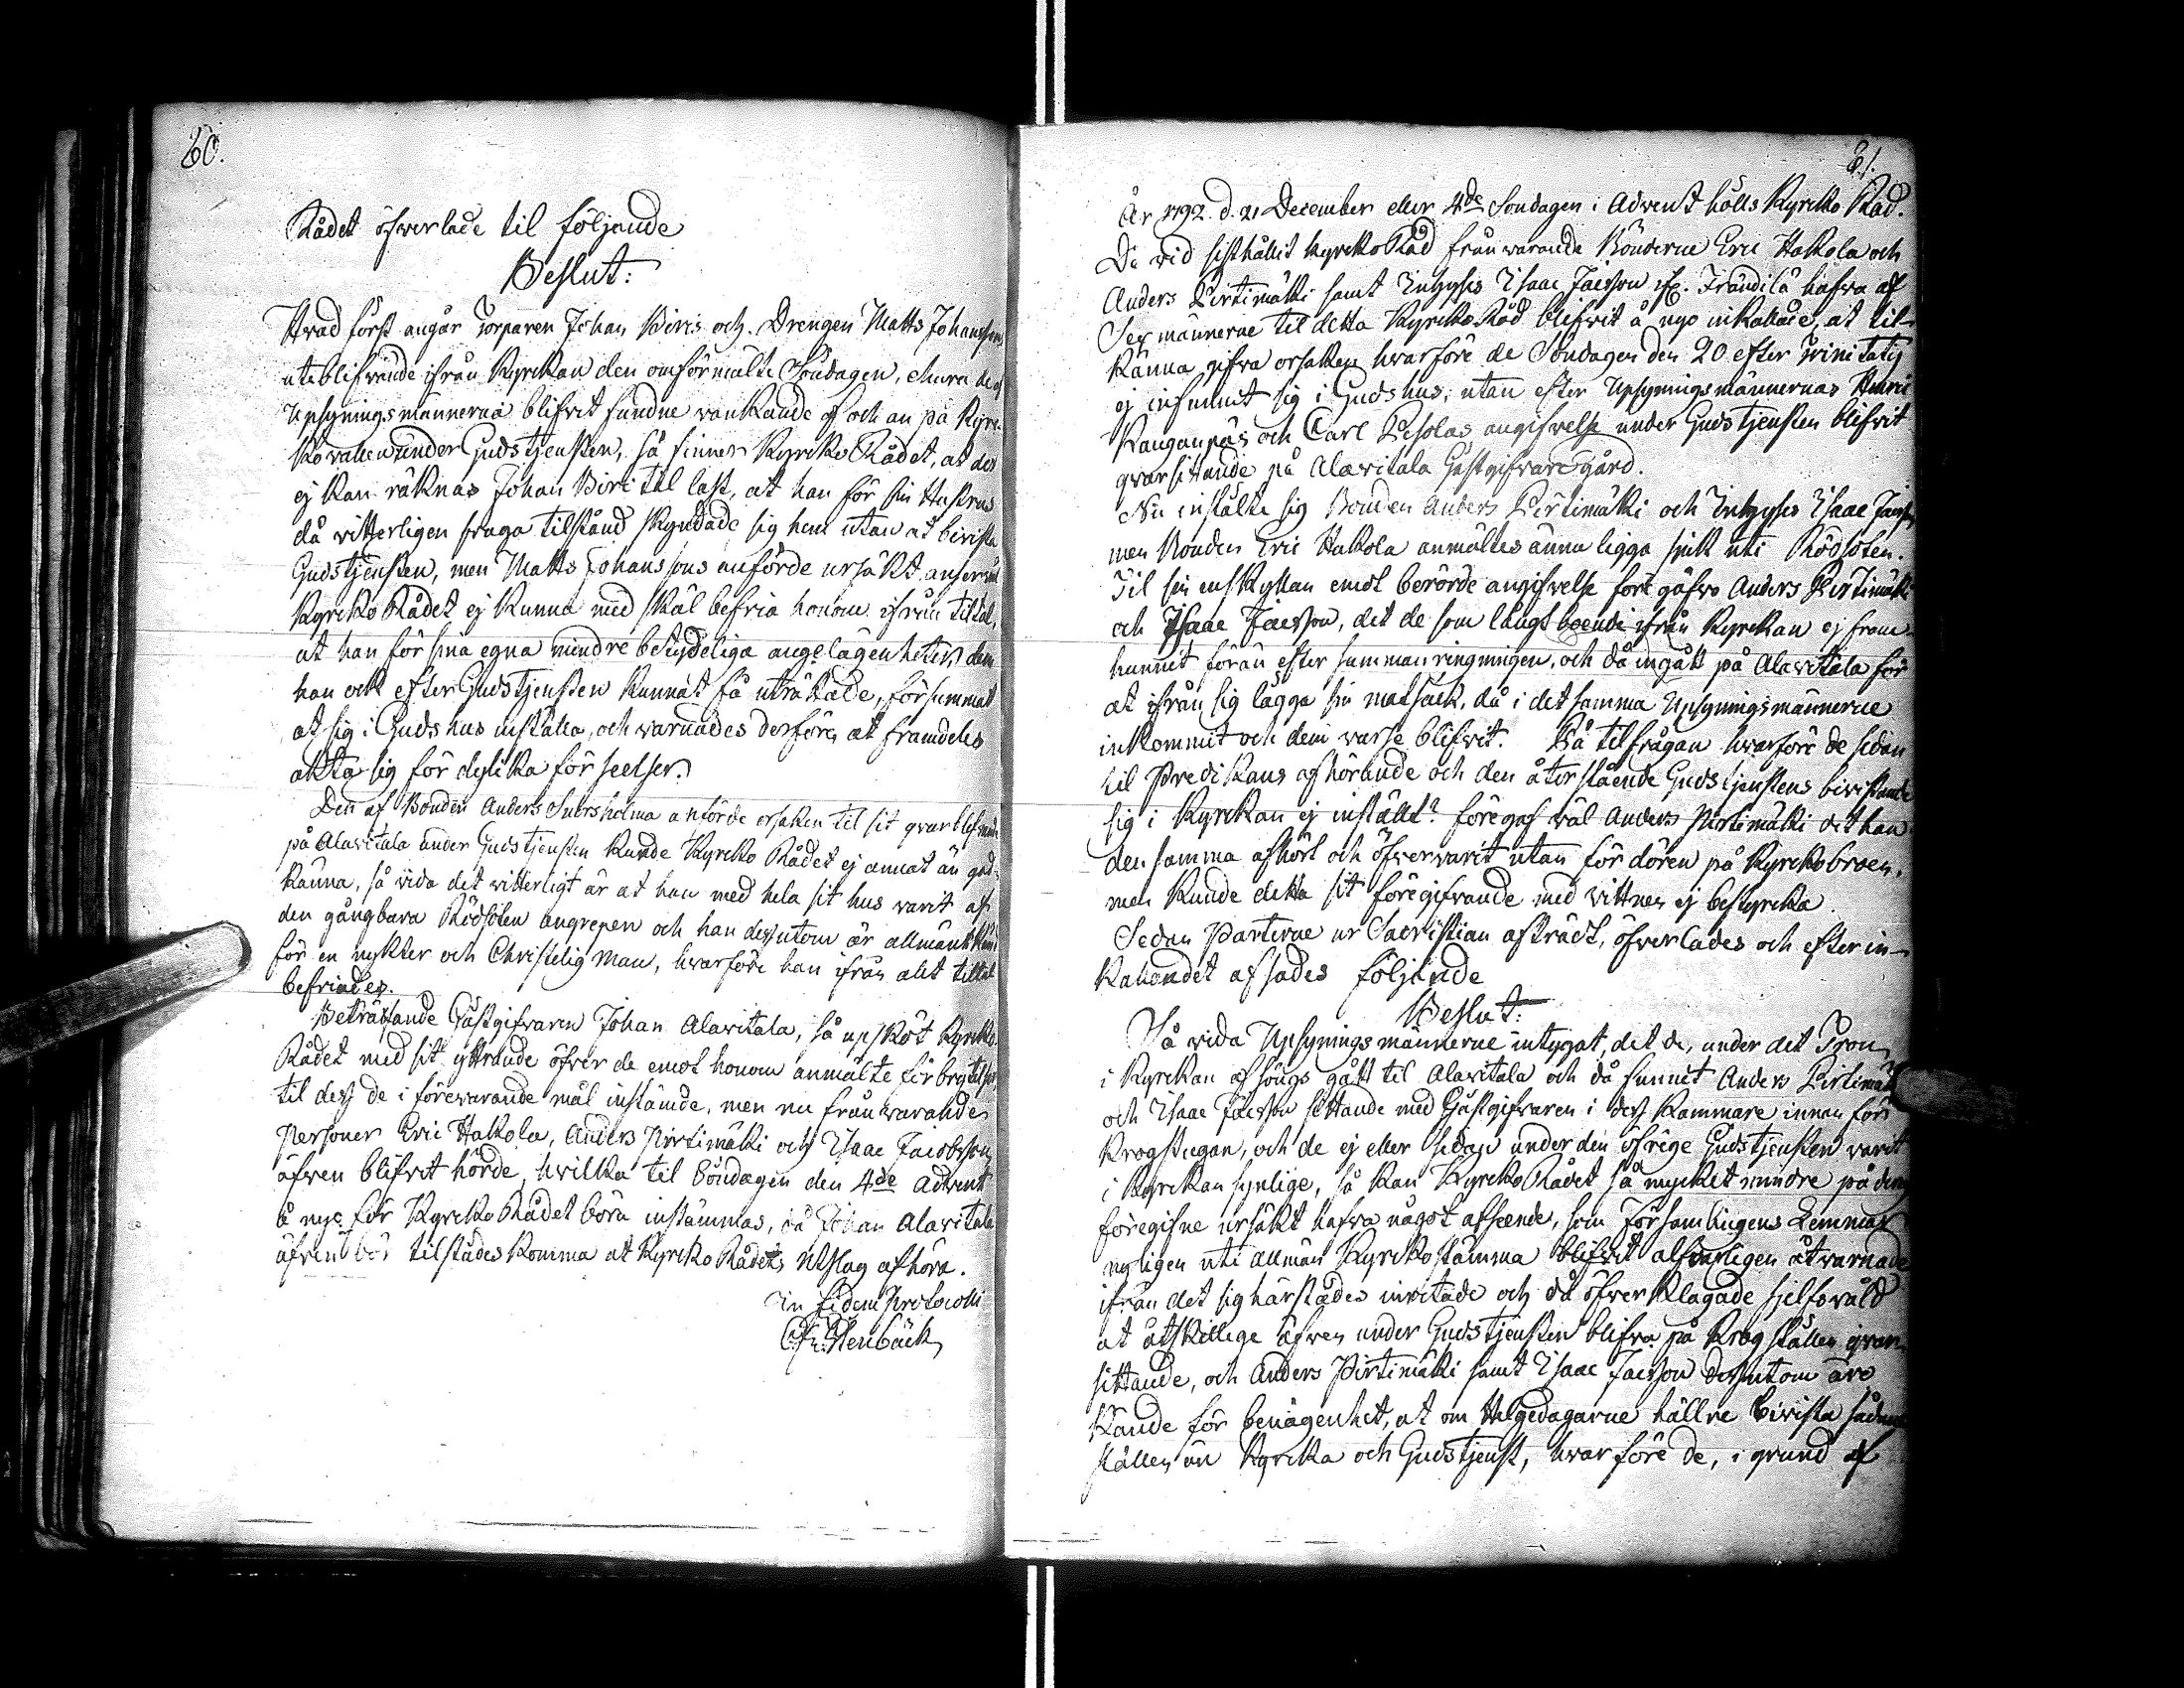 60.
Rådet öfwerlade til följande
Beslut:
Hvad först angår Torparen Johan Biris och Drengen Matts Johansson
uteblifwande ifrån Kyrkan den omförmälte Söndagen, ehuru de af
Upsyningsmännerna blifwit fundne wankande af och an på Kyrc-
kowallen under Gudstjensten, så finner Kyrcko Rådet, at det
ej kan räknas Johan Biri til last, at han för sin Hustrus
då witterligen swaga tilstånd skyndade sig hem utan at biwista
Gudstjensten, men Matts Johanssons anförde ursäkt anser
Kyrcko Rådet ej kunna med skäl befria honom ifrån tiltal,
at han för sina egna mindre betydeliga angelägenheter, dem
han ock efter Gudstjensten kunnat få uträttade, försummat
at sig i Guds hus inställa, och warnades derföre at framdeles
akta sig för dylika förseelser.
Den af Bonden Anders Suersholma anförde orsaken til sit qwarblifwande
på Alawitala under Gudstjensten kunde Kyrcko Rådet ej annat än god-
känna, så wida det witterligt är at han med hela sit hus warit af
den gångbara Rödsoten angrepen och han dessutom är allmänt känd
för en nykter och Christelig man, hwarföre han ifrån alt tiltal
befriades.
Beträffande Gästgifwaren Johan Alawitala, så upsköt Kyrcko
Rådet med sit yttrande öfwer de emot honom anmälte förbrytelser
til dess de i förewarande mål instämde, men nu frånwarande
Personer Eric Hakola, Anders Pirtimäki och Isaac Jacobsson
äfwen blifwit hörde, hwilka til Söndagen den 4de Advent
å nyo för Kyrcko Rådet böra instämmas, då Johan Alawitala
äfwen bör tilstädes komma at Kyrcko Rådets Utslag afhöra.
In fidem Protocolli
Stenbäck
61.
År 1792. d. 21 December eller 4de Söndagen i Advent hölls Kyrcko Råd.
De wid sisthållit Kyrcko Råd frånwarande Bönderne Eric Hakola och
Anders Pirtimäki samt Inhyses Isaac Jacsson ifr. Trändilä hafwa af
Sexmännerne til detta Kyrcko Råd blifwit å nyo inkallade, at til-
känna gifwa orsaken hwarföre de Söndagen den 20 efter Trinitatis
ej infunnit sig i Guds hus, utan efter Upsyningsmännernas Henric
Kanganpäs och Carl Pesolas angifwelse under Gudstjensten blifwit
qwarsittande på Alawitala Gästgifware gård.
Nu instälte sig Bonden Anders Pirtimäki och Inhyses Isaac Jacsson
men Bonden Eric Hakola anmältes ännu ligga sjuk uti Rödsoten.
Til sin enskyllan emot berörde angifwelse föregåfwo Anders Pirtimäki
och Isaac Jacsson, det de som långt boende ifrån Kyrckan ej fram-
hunnit förän efter sammanringningen, och då ingått på Alawitala för
at ifrån sig lägga sin matsäck, då i det samma Upsyningsmännerne
inkommit och dem warse blifwit. På tilfrågan hwarföre de sedan
til Predikans afhörande och den återstående Gudstjenstens biwistande
sig i Kyrckan ej inställt? föregaf wäl Anders Pirtimäki det han
den samma afhört och öfwerwarit utan för dören på Kyrckobroen,
men kunde detta sit föregifwande med Wittnen ej bestyrcka.
Sedan Parterne ur Sacristian afträdt, öfwerlades och efter in-
kallandet afsades följande
Beslut:
Så wida Upsyningsmännerne intygat, det de, under det Tron
i Kyrckan afsöngs gått til Alawitala och då funnit Anders Pirtimäki
och Isaac Jacsson sittande med Gästgifwaren i dess Kammare innan för
Krogstugan, och de ej eller sedan under den öfrige Gudstjensten warit
i Kyrckan synlige, så kan Kyrcko Rådet så mycket mindre på den
föregifne ursäkt hafwa något afseende, som Församlingens Lemmar
nyligen uti allmän Kyrckostämma blifwit alfwarligen åtwarnade
ifrån det sig härstädes inritade och då öfwerklagade sjelfswåld
at åtskillige äfwen under Gudstjensten blifwa på Krogställen qwar-
sittande, och Anders Pirtimäki samt Isaac Jacsson dessutom äro
kände för benägenhet, at om Helgedagarne hällre biwista sådane
ställen än Kyrcka och Gudstjenst, hwarföre de, i grund af